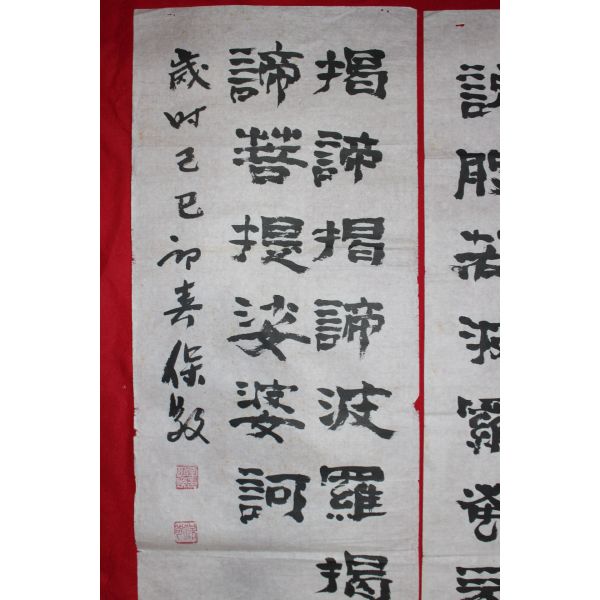 說般若波羅蜜
揭諦揭諦波羅揭
諦菩提娑婆訶
歲时己巳初春保